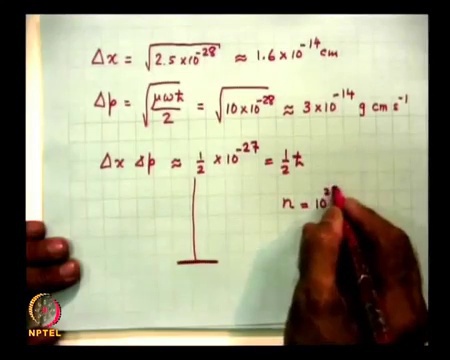 Δx = √2.5×10⁻²⁸ ≈ 1.6×10⁻¹⁴ cm
Δp = √μωħ/2 = √10×10⁻²⁸ ≈ 3×10⁻¹⁴ g cm s⁻¹
Δx Δp ≈ 1/2 × 10⁻²⁷ = 1/2 ħ
n = 10²
NPTEL